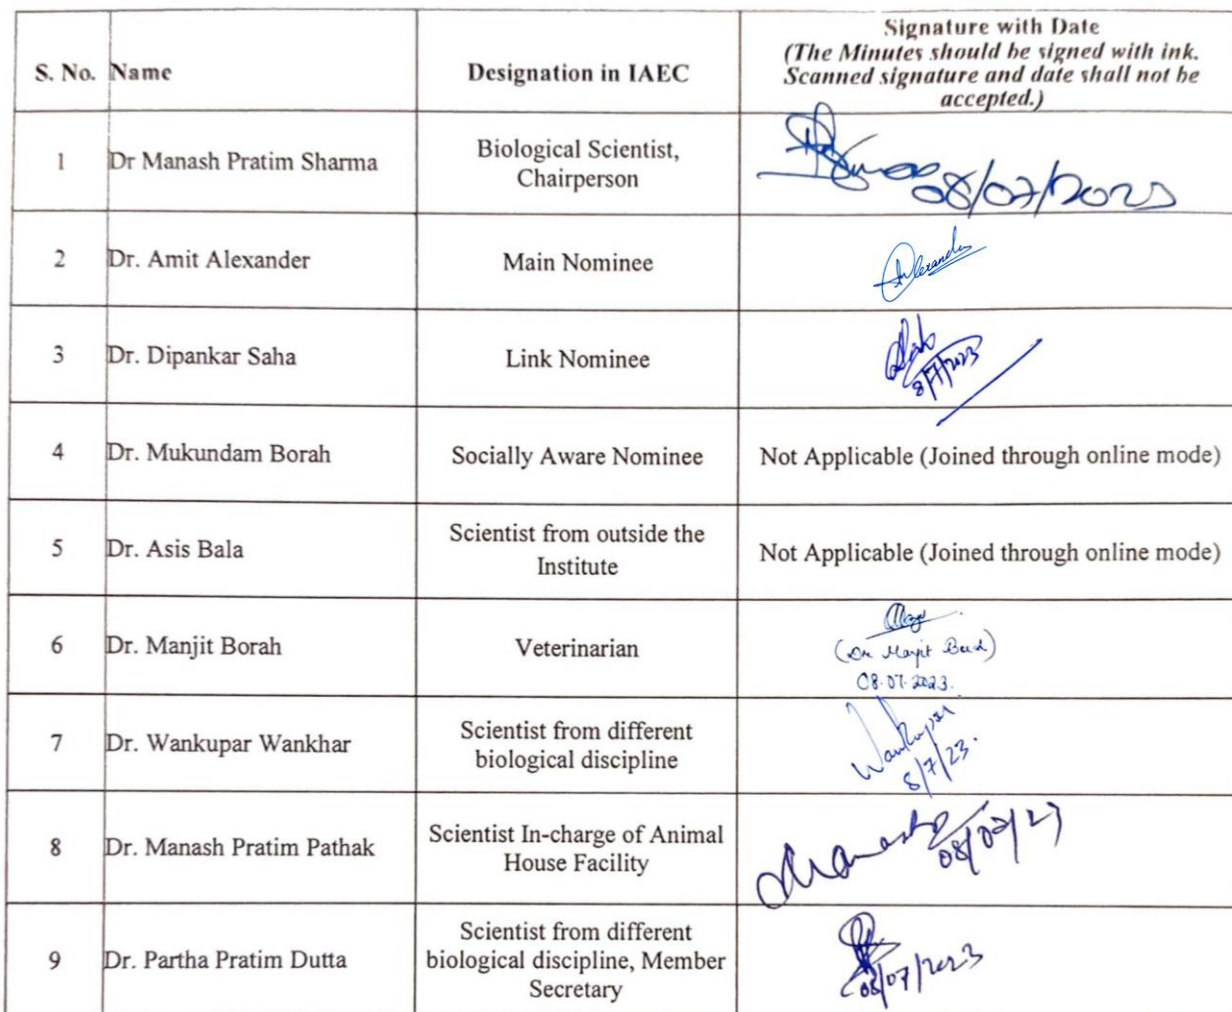 S. No. Name Designation in IAEC Signature with Date
(The Minutes should be signed with ink.
Scanned signature and date shall not be
accepted.)
1 Dr Manash Pratim Sharma Biological Scientist,
Chairperson
08/07/2023
2 Dr. Amit Alexander Main Nominee
Alexander
3 Dr. Dipankar Saha Link Nominee
8/7/2023
4 Dr. Mukundam Borah Socially Aware Nominee Not Applicable (Joined through online mode)
5 Dr. Asis Bala Scientist from outside the
Institute
Not Applicable (Joined through online mode)
6 Dr. Manjit Borah Veterinarian
(Dr Manjit Borah)
08.07.2023.
7 Dr. Wankupar Wankhar Scientist from different
biological discipline
Wankupar
8/7/23.
8 Dr. Manash Pratim Pathak Scientist In-charge of Animal
House Facility
Manash
08/07/23
9 Dr. Partha Pratim Dutta Scientist from different
biological discipline, Member
Secretary
08/07/2023